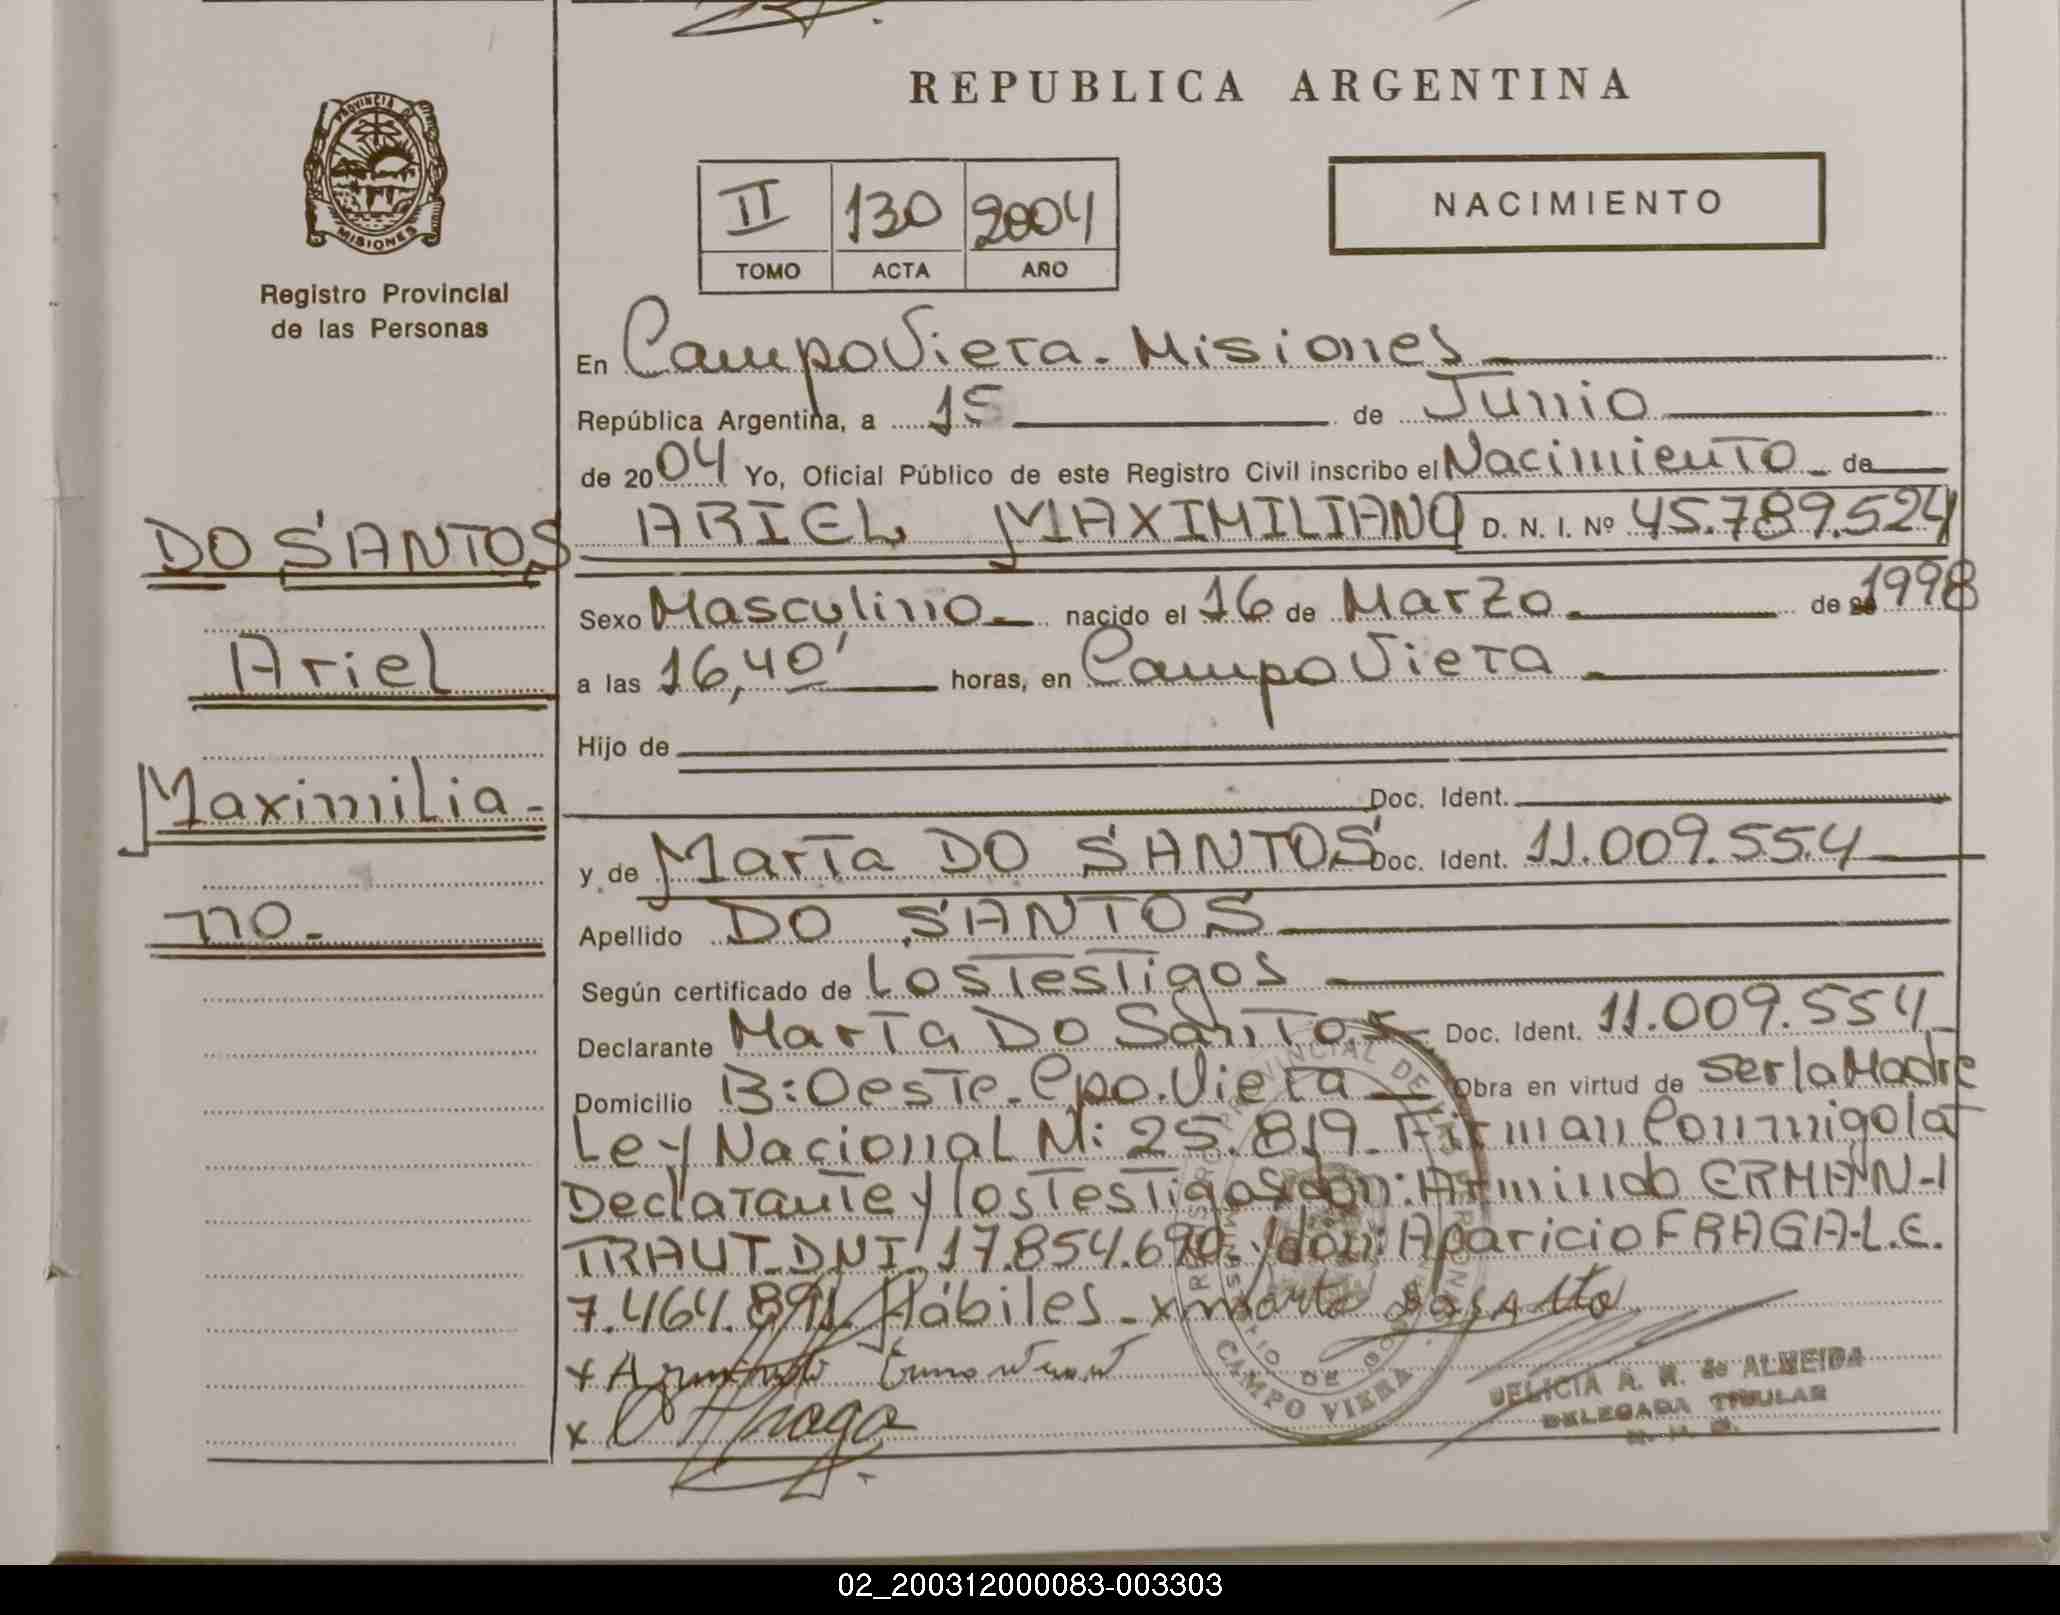 REPUBLICA ARGENTINA
PROVINCIA DE
MISIONES
Registro Provincial
de las Personas
II 130 2004
TOMO ACTA AÑO
NACIMIENTO
En Campo Viera - Misiones
República Argentina, a 15 de Junio
de 2004 Yo, Oficial Público de este Registro Civil inscribo el Nacimiento de
DO SANTOS
Ariel
Maximilia-
no.
ARIEL MAXIMILIANO D. N. I. Nº 45.789.524
Sexo Masculino nacido el 16 de Marzo de 1998
a las 16,40' horas, en Campo Viera
Hijo de
Doc. Ident.
y de Marta DO SANTOS Doc. Ident. 11.009.554
Apellido DO SANTOS
Según certificado de Los Testigos
Declarante Marta Do Santos Doc. Ident. 11.009.554
Domicilio B: Oeste - Cpo. Viera Obra en virtud de ser la Madre
Ley Nacional N: 25.819 - Firman Conmigo la
Declarante y los Testigos don: Armindo ERMAN-
TRAUT - DNI 17.854.690 - y don: Aparicio FRAGA - L.E.
7.464.891. Hábiles - x
x Armindo
x Fraga
CAMPO VIERA
DELICIA A. R. de ALMEIDA
DELEGADA TITULAR
02_200312000083-003303